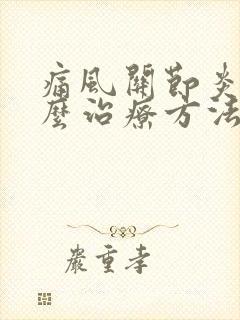 痛風關節炎
麼治療方法
嚴重孝